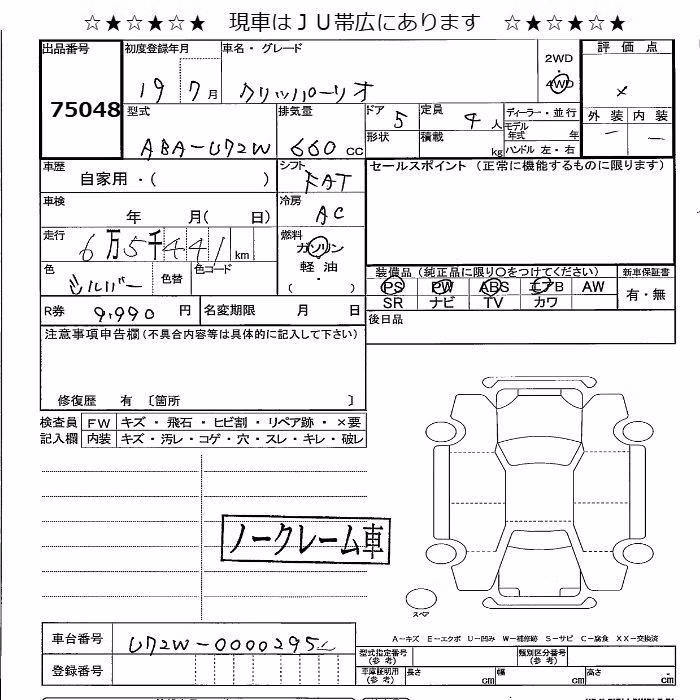 ☆★☆★☆★ 現車はＪＵ帯広にあります ☆★☆★☆★
出品番号 75048
初度登録年月 19 7月
車名・グレード クリッパーリオ
2WD ・ 4WD
評価点 ×
外装 ー 内装 ー
型式 ABA-U72W
排気量 660 cc
ドア 5 定員 4人
形状 積載 kg
ディーラー・並行
モデル年式 年
ハンドル 左・右
車歴 自家用・( )
シフト FAT
セールスポイント (正常に機能するものに限ります)
車検 年 月( 日)
冷房 AC
走行 6万5千441km
燃料 ガソリン 軽油 ( ・ )
色 シルバー 色替 色コード
装備品(純正品に限り○をつけてください) 新車保証書
PS PW ABS エアB AW 有・無
SR ナビ TV カワ
R券 9,990 円 名変期限 月 日
後日品
注意事項申告欄(不具合内容等は具体的に記入して下さい)
修復歴 有 〔箇所 〕
検査員記入欄
FW キズ・飛石・ヒビ割・リペア跡・×要
内装 キズ・汚レ・コゲ・穴・スレ・キレ・破レ
ノークレーム車
スペア
A－キズ E－エクボ U－凹み W－補修跡 S－サビ C－腐食 XX－交換済
車台番号 U72W-0000295
登録番号
型式指定番号(参考) 類別区分番号(参考)
車庫証明用(参考) 長さ cm 幅 cm 高さ cm